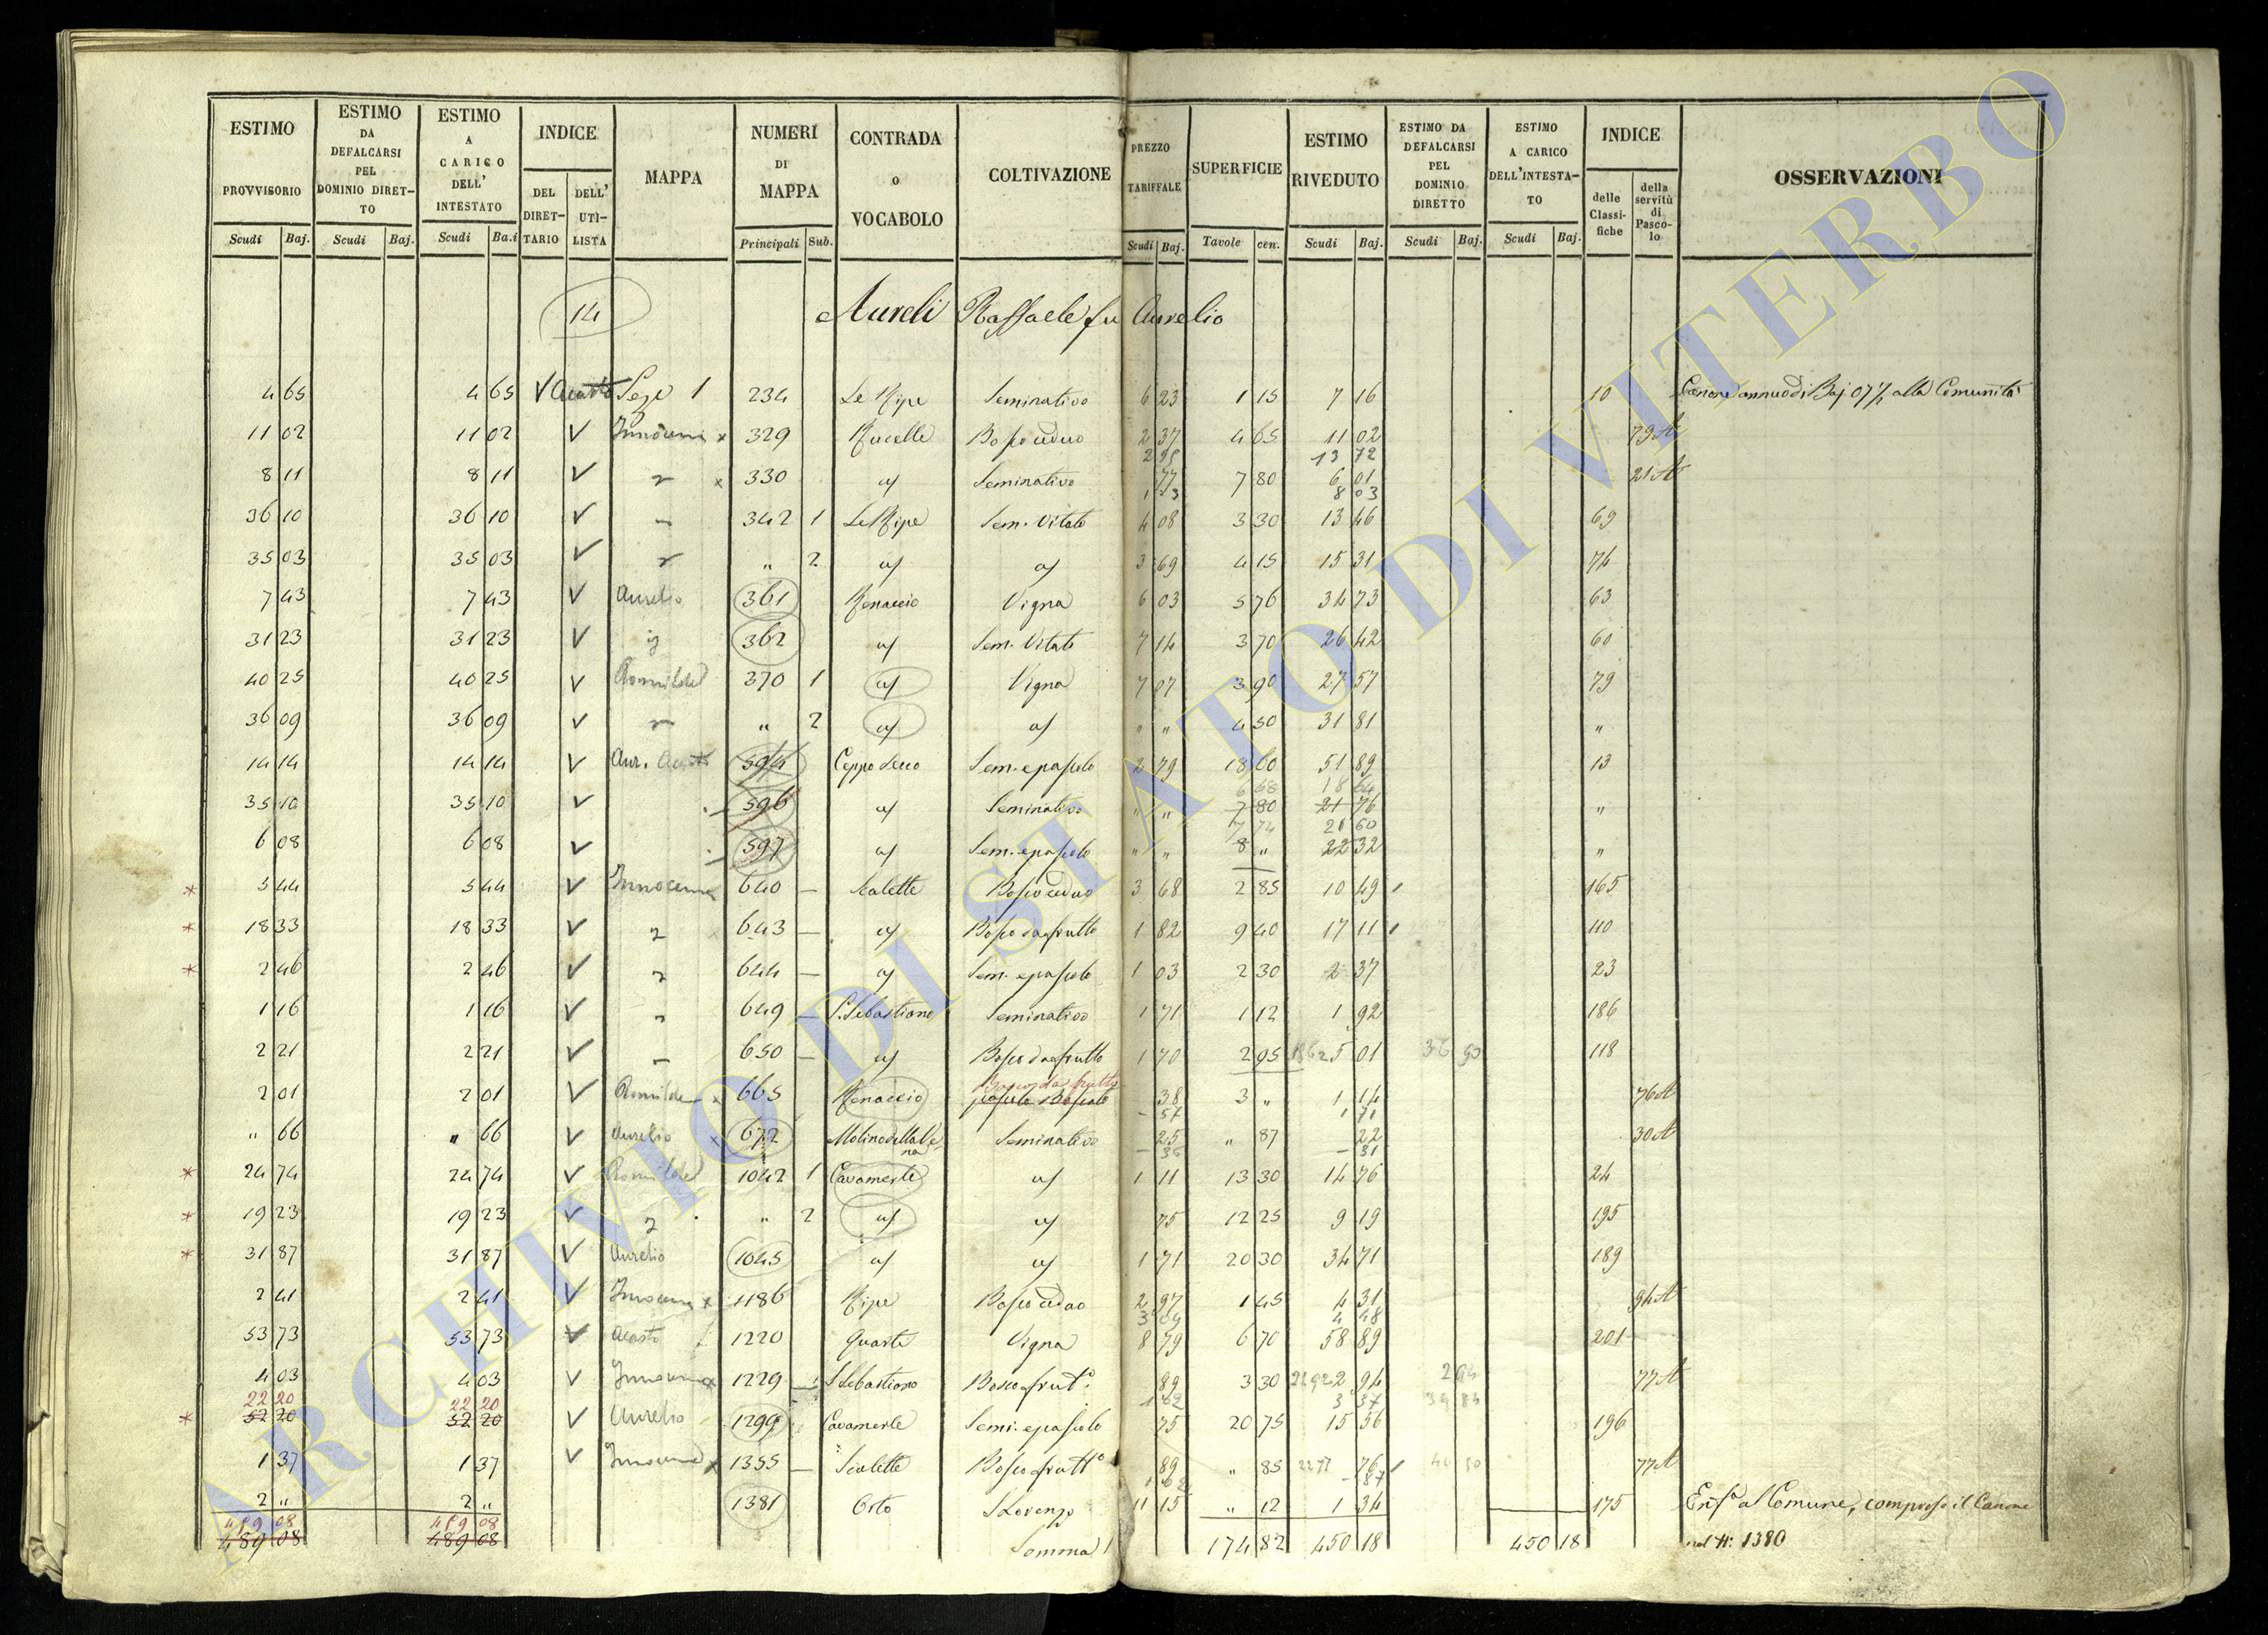 ESTIMO PROVVISORIO Scudi Baj. ESTIMO DA DEFALCARSI PEL DOMINIO DIRET-TO Scudi Baj. ESTIMO A CARICO DELL' INTESTATO Scudi Ba.i INDICE DEL DIRET-TARIO DELL' UTI-LISTA MAPPA NUMERI DI MAPPA Principali Sub. CONTRADA o VOCABOLO COLTIVAZIONE PREZZO TARIFFALE Scudi Baj. SUPERFICIE Tavole cen. ESTIMO RIVEDUTO Scudi Baj. ESTIMO DA DEFALCARSI PEL DOMINIO DIRETTO Scudi Baj. ESTIMO A CARICO DELL'INTESTA-TO Scudi Baj. INDICE delle Classi-fiche della servitù di Pasco-lo OSSERVAZIONI
14 Aureli Raffaele fu Aurelio
4 65 4 65 V Acasto 1 234 Le Ripe Seminativo 6 23 1 15 7 16 10 Canone annuo di Baj 07½ alla Comunità
11 02 11 02 V x 329 Rucelle Bosco ceduo 2 37 4 65 11 02 79 A
13 72
8 11 8 11 V x 330 a/ Seminativo 77 7 80 6 01 21 A
8 03
36 10 36 10 V 342 1 Le Ripe Sem. Vitato 4 08 3 30 13 46 69
35 03 35 03 V " 2 a/ a/ 3 69 4 15 15 31 74
7 43 7 43 V Aurelio 361 Renaccio Vigna 6 03 5 76 34 73 63
31 23 31 23 V 362 a/ Sem. Vitato 7 14 3 70 26 42 60
40 25 40 25 V Romilde 370 1 a/ Vigna 7 07 3 90 27 57 79
36 09 36 09 V " 2 a/ a/ " " 4 50 31 81 "
14 14 14 14 V Aur. Acasto 594 Ceppo Secco Sem. e pascolo 2 79 18 60 51 89 13
6 68 18 64
35 10 35 10 V 596 a/ Seminativo " " 7 80 21 76 "
7 74 21 60
6 08 6 08 V 597 a/ Sem. e pascolo " " 8 " 22 32 "
* 5 44 5 44 V Innocenza 640 Scalette Bosco ceduo 3 68 2 85 10 49 165
* 18 33 18 33 V 643 a/ Bosco da frutto 1 82 9 40 17 11 110
* 2 46 2 46 V 644 a/ Sem. e pascolo 1 03 2 30 2 37 23
1 16 1 16 V 649 S. Sebastiano Seminativo 1 71 1 12 1 92 186
2 21 2 21 V 650 a/ Bosco da frutto 1 70 2 95 5 01 36 50 118
Bosco da frutto
2 01 2 01 V Romilde x 665 Renaccio pascolo Boscato 38 3 " 1 14 76 A
57 1 71
" 66 " 66 V Aurelio x 672 Molino della Vena Seminativo 25 " 87 22 30 A
31
* 24 74 24 74 V Romilde 1042 1 Cavamerle a/ 1 11 13 30 14 76 24
* 19 23 19 23 V " 2 a/ a/ 75 12 25 9 19 195
* 31 87 31 87 V Aurelio 1045 a/ a/ 1 71 20 30 34 71 189
2 41 2 41 V x 1186 Ripe Bosco ceduo 2 97 1 45 4 31 94 A
53 73 53 73 V Acasto 1220 Quarti Vigna 8 79 6 70 58 89 201
4 03 4 03 V x 1229 S Sebastiano Bosco frut.º 89 3 30 2 94 77 A
22 20 22 20 3 37
* 52 20 52 20 V Aurelio 1299 Cavamerle Semi. e pascolo 75 20 75 15 56 196
1 37 1 37 V x 1355 Scalette Bosco frutt.º 89 " 85 76 77 A
87
2 " 2 " 1381 Orto S Lorenzo 11 15 " 12 1 34 175 Enf.a al Comune, compreso il Canone
459 08 459 08
489 08 489 08 Somma 174 82 450 18 450 18 nel N: 1380
ARCHIVIO DI STATO DI VITERBO